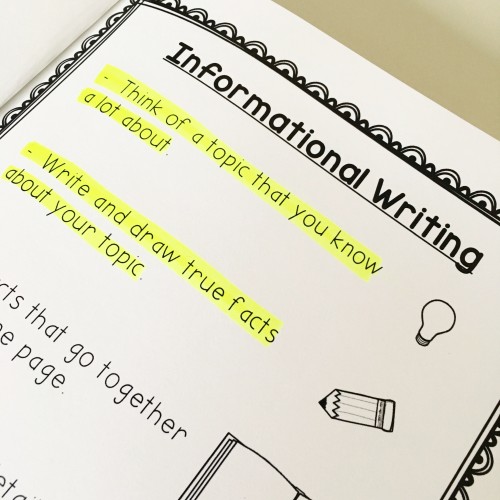 Informational Writing
- Think of a topic that you know
a lot about.
- Write and draw true facts
about your topic.
that go together
page.